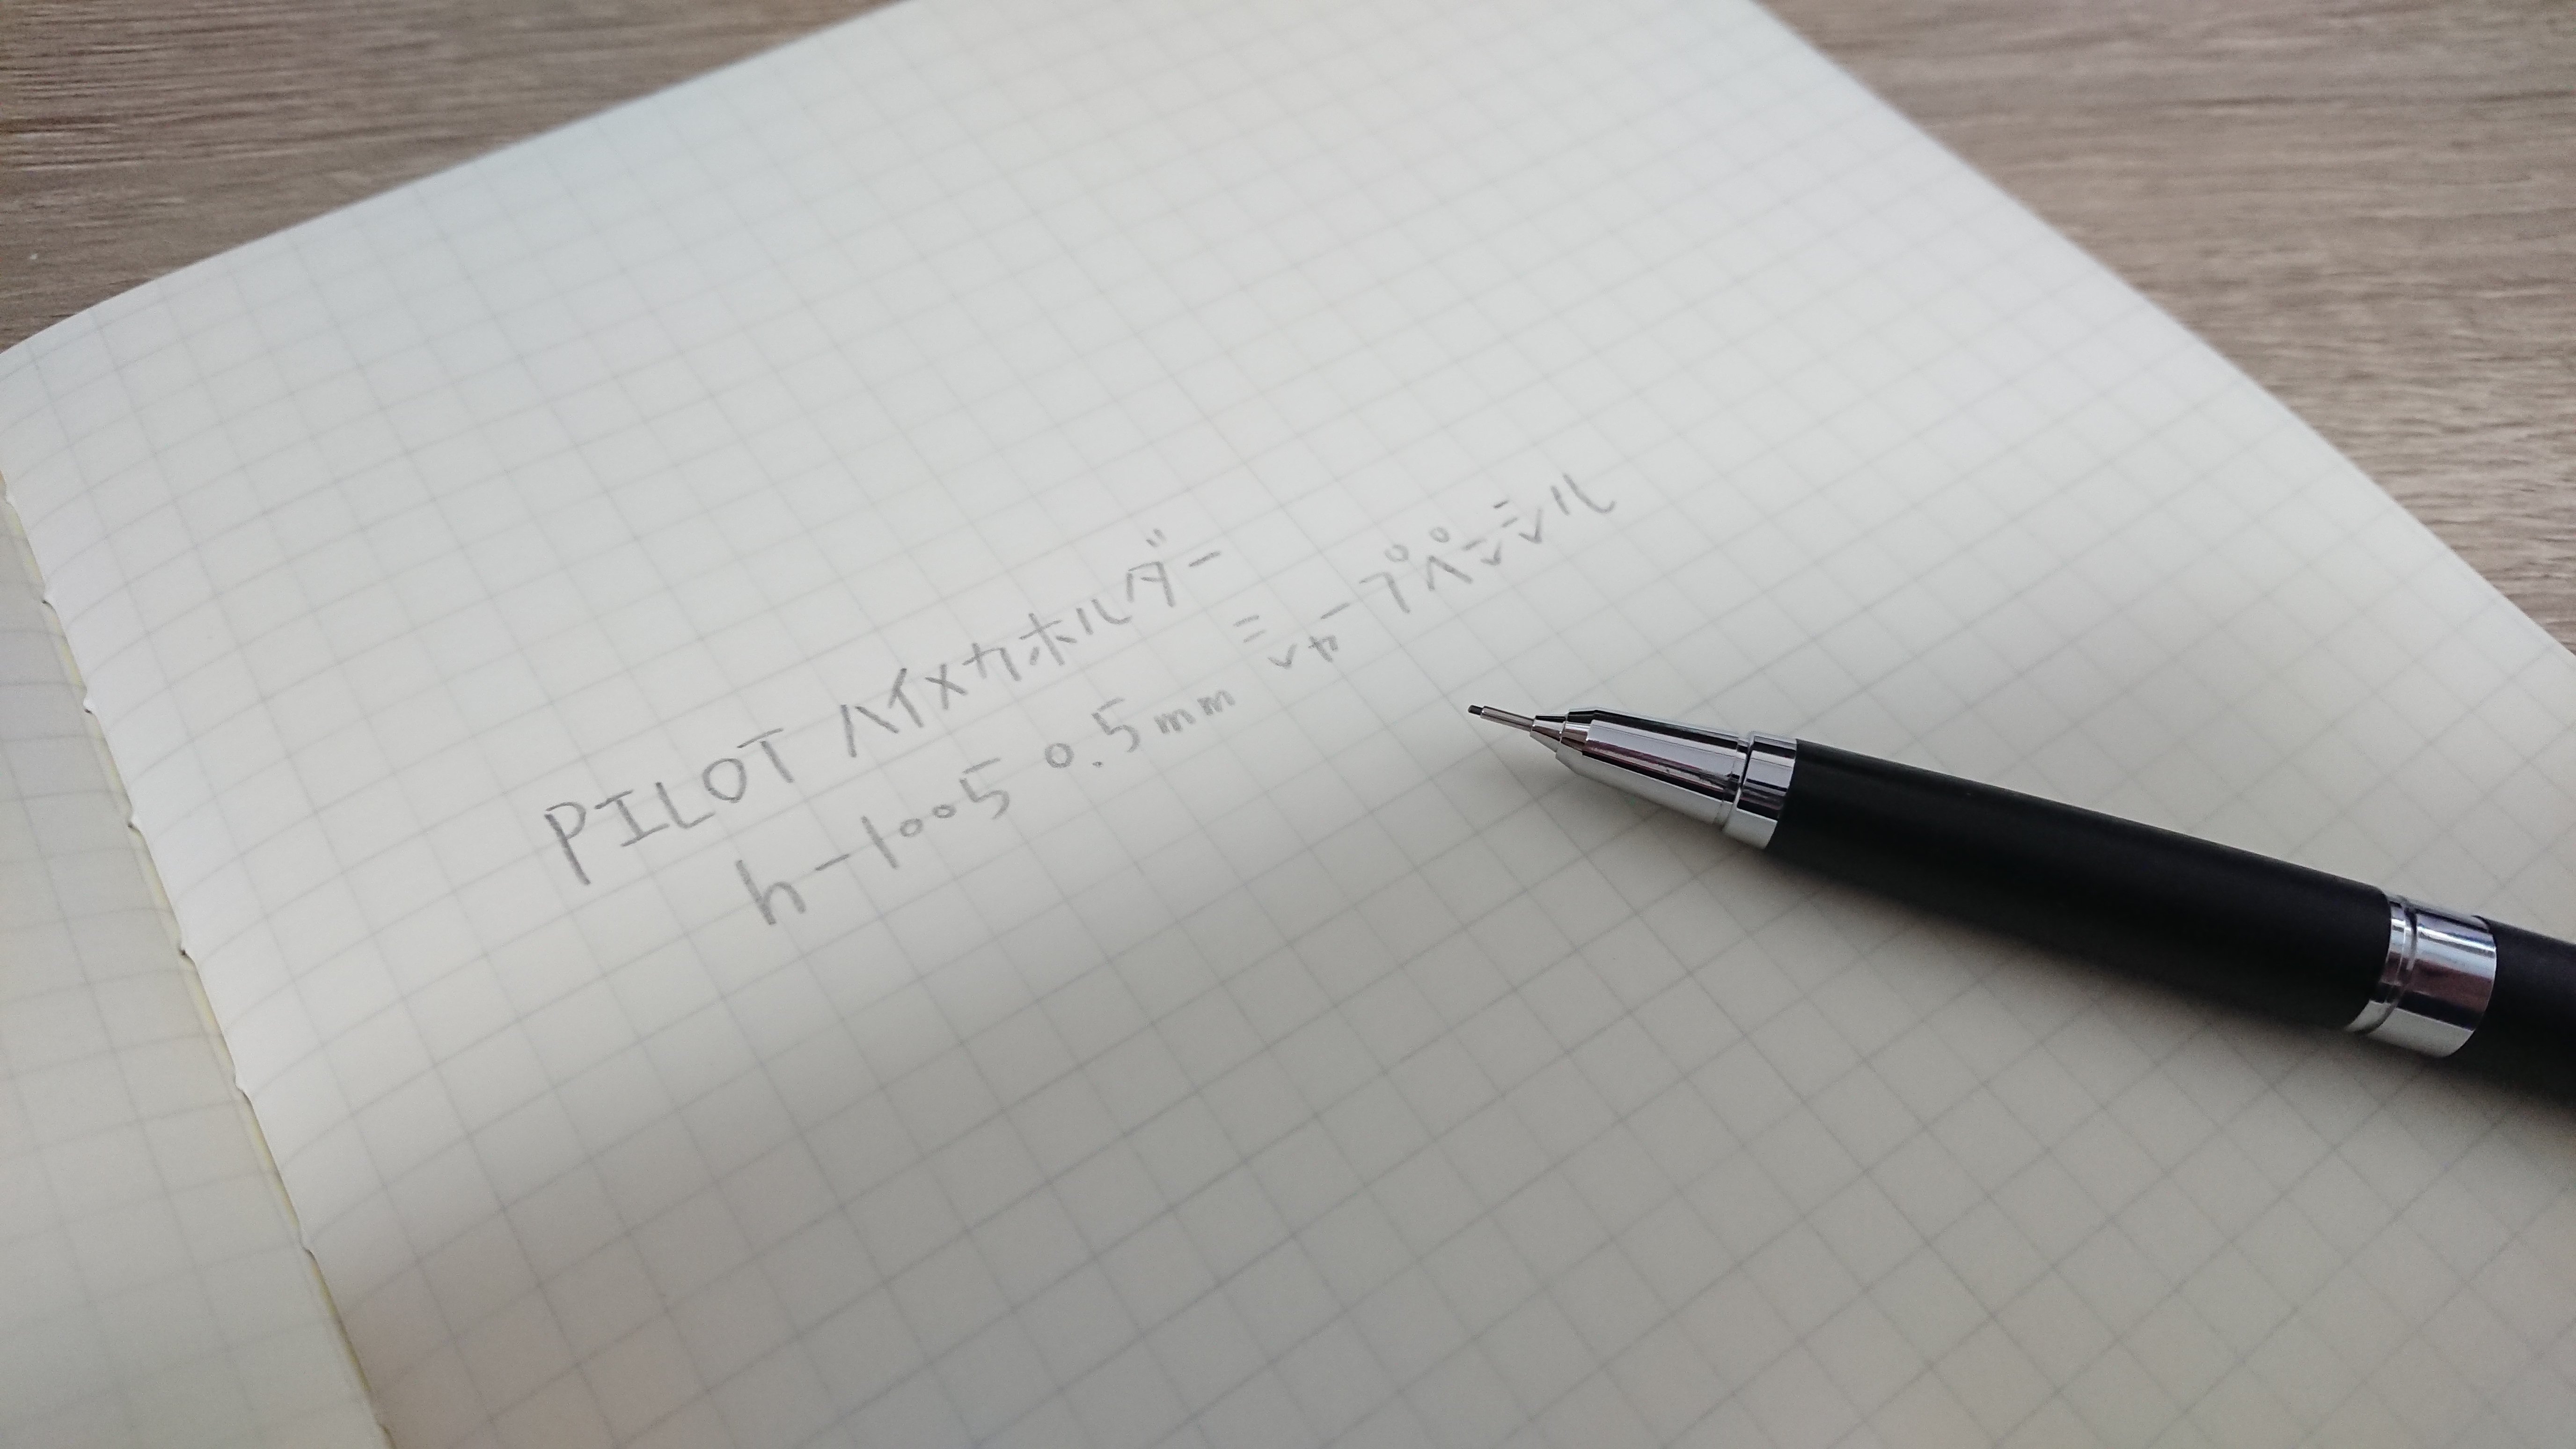 PILOT ハイメカホルダー
h-1005 0.5mm シャープペンシル